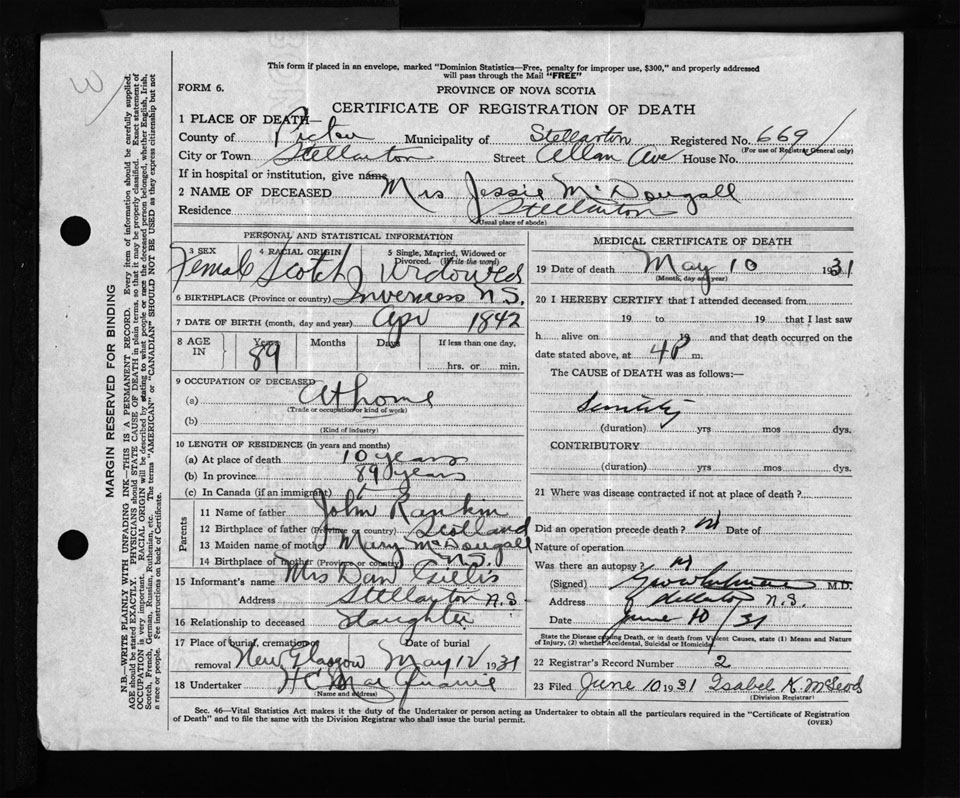 3
This form if placed in an envelope, marked "Dominion Statistics—Free, penalty for improper use, $300," and properly addressed
will pass through the Mail "FREE"
FORM 6.
PROVINCE OF NOVA SCOTIA
CERTIFICATE OF REGISTRATION OF DEATH
1 PLACE OF DEATH—
County of Pictou Municipality of Stellarton Registered No. 669
(For use of Registrar General only)
City or Town Stellarton Street Allan Ave House No.
If in hospital or institution, give name
2 NAME OF DECEASED Mrs Jessie McDougall
Residence Stellarton
(Usual place of abode)
PERSONAL AND STATISTICAL INFORMATION
3 SEX 4 RACIAL ORIGIN 5 Single, Married, Widowed or Divorced. (Write the word)
Female Scotch Widowed
6 BIRTHPLACE (Province or country) Inverness N.S.
7 DATE OF BIRTH (month, day and year) Apr 1842
8 AGE IN Years Months Days If less than one day,
89 hrs. or min.
9 OCCUPATION OF DECEASED
(a) At home
(Trade or occupation or kind of work)
(b)
(Kind of industry)
10 LENGTH OF RESIDENCE (in years and months)
(a) At place of death 10 years
(b) In province 89 years
(c) In Canada (if an immigrant)
Parents
11 Name of father John Rankin
12 Birthplace of father (Province or country) Scotland
13 Maiden name of mother Mary McDougall
14 Birthplace of mother (Province or country) N.S.
15 Informant's name Mrs Dan Gillis
Address Stellarton N.S.
16 Relationship to deceased Daughter
17 Place of burial, cremation or removal Date of burial
New Glasgow May 12 1931
18 Undertaker H C Mac Quarrie
(Name and address)
MEDICAL CERTIFICATE OF DEATH
19 Date of death May 10 1931
(Month, day and year)
20 I HEREBY CERTIFY that I attended deceased from
19 to 19 that I last saw
h alive on 19 and that death occurred on the
date stated above, at 4 P m.
The CAUSE of DEATH was as follows:—
Senility
(duration) yrs mos dys.
CONTRIBUTORY
(duration) yrs mos dys.
21 Where was disease contracted if not at place of death?
Did an operation precede death? no Date of
Nature of operation
Was there an autopsy? no
(Signed) M.D.
Address Stellarton N.S.
Date June 10/31
State the Disease causing Death, or in death from Violent Causes, state (1) Means and Nature
of Injury, (2) whether Accidental, Suicidal or Homicidal
22 Registrar's Record Number 2
23 Filed June 10 1931 Isabel K. McLeod
(Division Registrar)
Sec. 46—Vital Statistics Act makes it the duty of the Undertaker or person acting as Undertaker to obtain all the particulars required in the "Certificate of Registration
of Death" and to file the same with the Division Registrar who shall issue the burial permit.
(OVER)
MARGIN RESERVED FOR BINDING
N.B.—WRITE PLAINLY WITH UNFADING INK—THIS IS A PERMANENT RECORD. Every item of information should be carefully supplied.
AGE should be stated EXACTLY. PHYSICIANS should STATE CAUSE OF DEATH in plain terms, so that it may be properly classified. Exact statement of
OCCUPATION is very important. RACIAL ORIGIN will be described by stating to what people or race the deceased person belonged, whether English, Irish,
Scotch, French, German, Russian, Ruthenian, etc. The terms "AMERICAN" or "CANADIAN" SHOULD NOT BE USED as they express citizenship but not
a race or people. See instructions on back of Certificate.